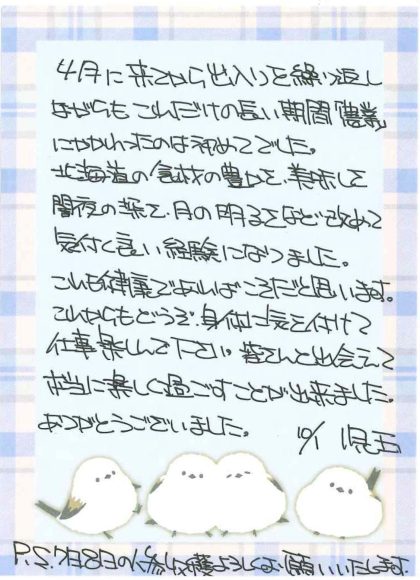 4月に来てから出入りを繰り返し
ながらもこれだけの長い期間農業
にかかわったのは初めてでした。
北海道の食材の豊かさ、美味しさ
闇夜の深さ、月の明るさなど改めて
気付く良い経験になりました。
これも健康であればこそだと思います。
これからもどうぞ、身体に気を付けて
仕事楽しんで下さい。皆さんと出会えて
本当に楽しく過ごすことが出来ました。
ありがとうございました。 10/1 児玉
P.S. 7日8日の人参収穫よろしくお願いいたします。